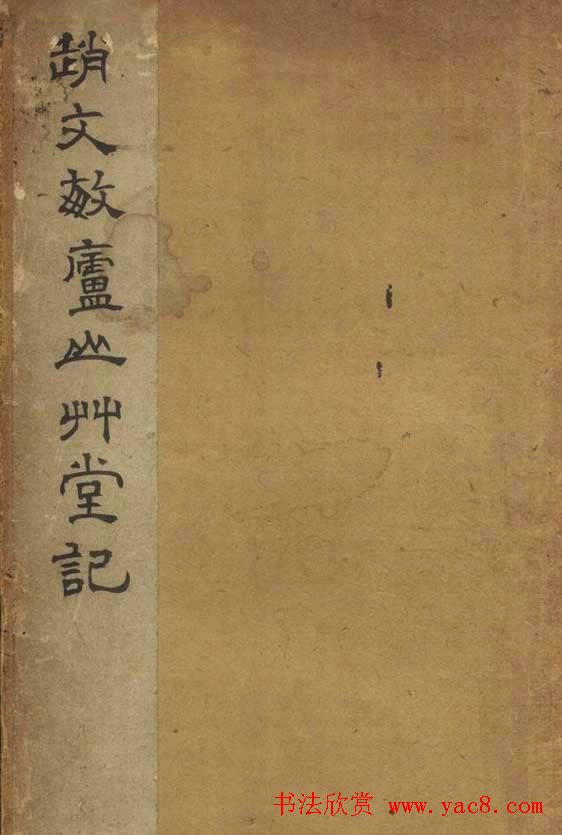 趙文敏廬山艸堂記
书法欣赏 www.yac8.com